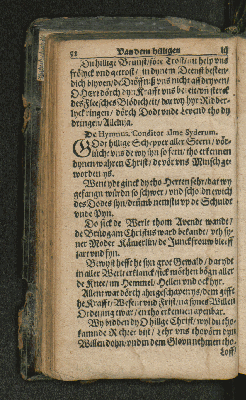 Van dem hilligen
Du hillige Brunst, söte Trost, nu help vns
frölyck vnd getrost, in dynem Deenst besten-
dich blyven, de Dröffniß vns nicht affdryven,
O Here dörch dyn Krafft vns bereit
des Flesches Blödicheit, dat wy hyr Ridder-
lyck ringen, dörch Dodt vnde Levend tho dy
dringen, Alleluja.
De Hymnus, Conditor alme Syderum.
GOdt hillige Schepper aller Stern, vor-
lüchte vns de wy syn so fern, tho erkennen
dynen waren Christ, de vor vns Minsch ge-
worden ys.
Wente ydt ginck dy tho Herten sehr, dat wy
gefangen würden so schwer, vnd scholden ewich
des Dodes syn, drümb nemstu vp de Schuldt
vnde Pyn.
Do sick de Werlt thom Avende wande,
de Brüdgam Christus ward bekandt, vth sy-
ner Moder Kämerlin, de Junckfrouw bleeff
zart vnd fyn.
Bewyst hefft he syn grot Gewald, dat ydt
in aller Werlt erklanck, sick möthen bögen aller
de Knee, im Hemmel, Hellen vnd ock hyr.
Allent wat dörch ahn geschapen ys, dem gifft
he Krafft, Wesen vnd Frist, na synes Willen
Ordening twar, en tho erkennen apenbar.
Wy bidden dy O hillge Christ, wyl du tho-
kamende Richter bist, lehr vns thovörn dyn
Willen dohn, vnd in dem Gloven nehmen tho.
Loff